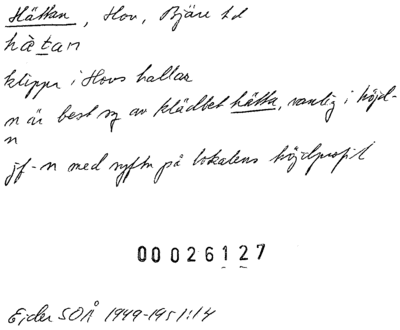 Hättan, Hov, Bjäre hd
hàtan
klippa i Hovs hallar
n är best sg av klädbet hätta, vanlig i höjd-
n
jf -n med syftn på lokalens höjdprofil
00026127
Ejder SOÅ 1949-1951:14